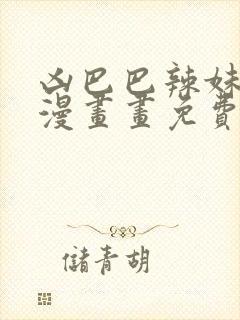 凶巴巴辣妹
漫畫畫免費
儲青胡